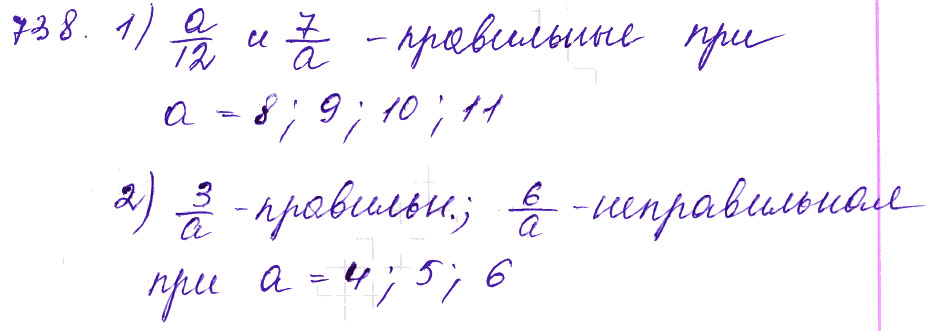 738. 1) a/12 и 7/a - правильные при
a = 8; 9; 10; 11
2) 3/a - правильн.; 6/a - неправильная
при a = 4; 5; 6